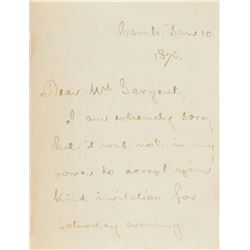 Camb. Jan 10.
1876.
Dear Mrs Sargent,
I am extremely sorry
that it was not in my
power to accept your
kind invitation for
Saturday evening